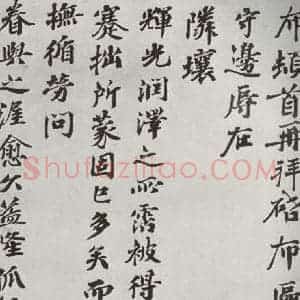 布頓首再拜啓布區
守邊辱在
隣壤
輝光润澤之所霑被得
蹇拙所蒙固已多矣而
撫循勞問
眷與之渥愈久益隆孤
Shufaziliao.com